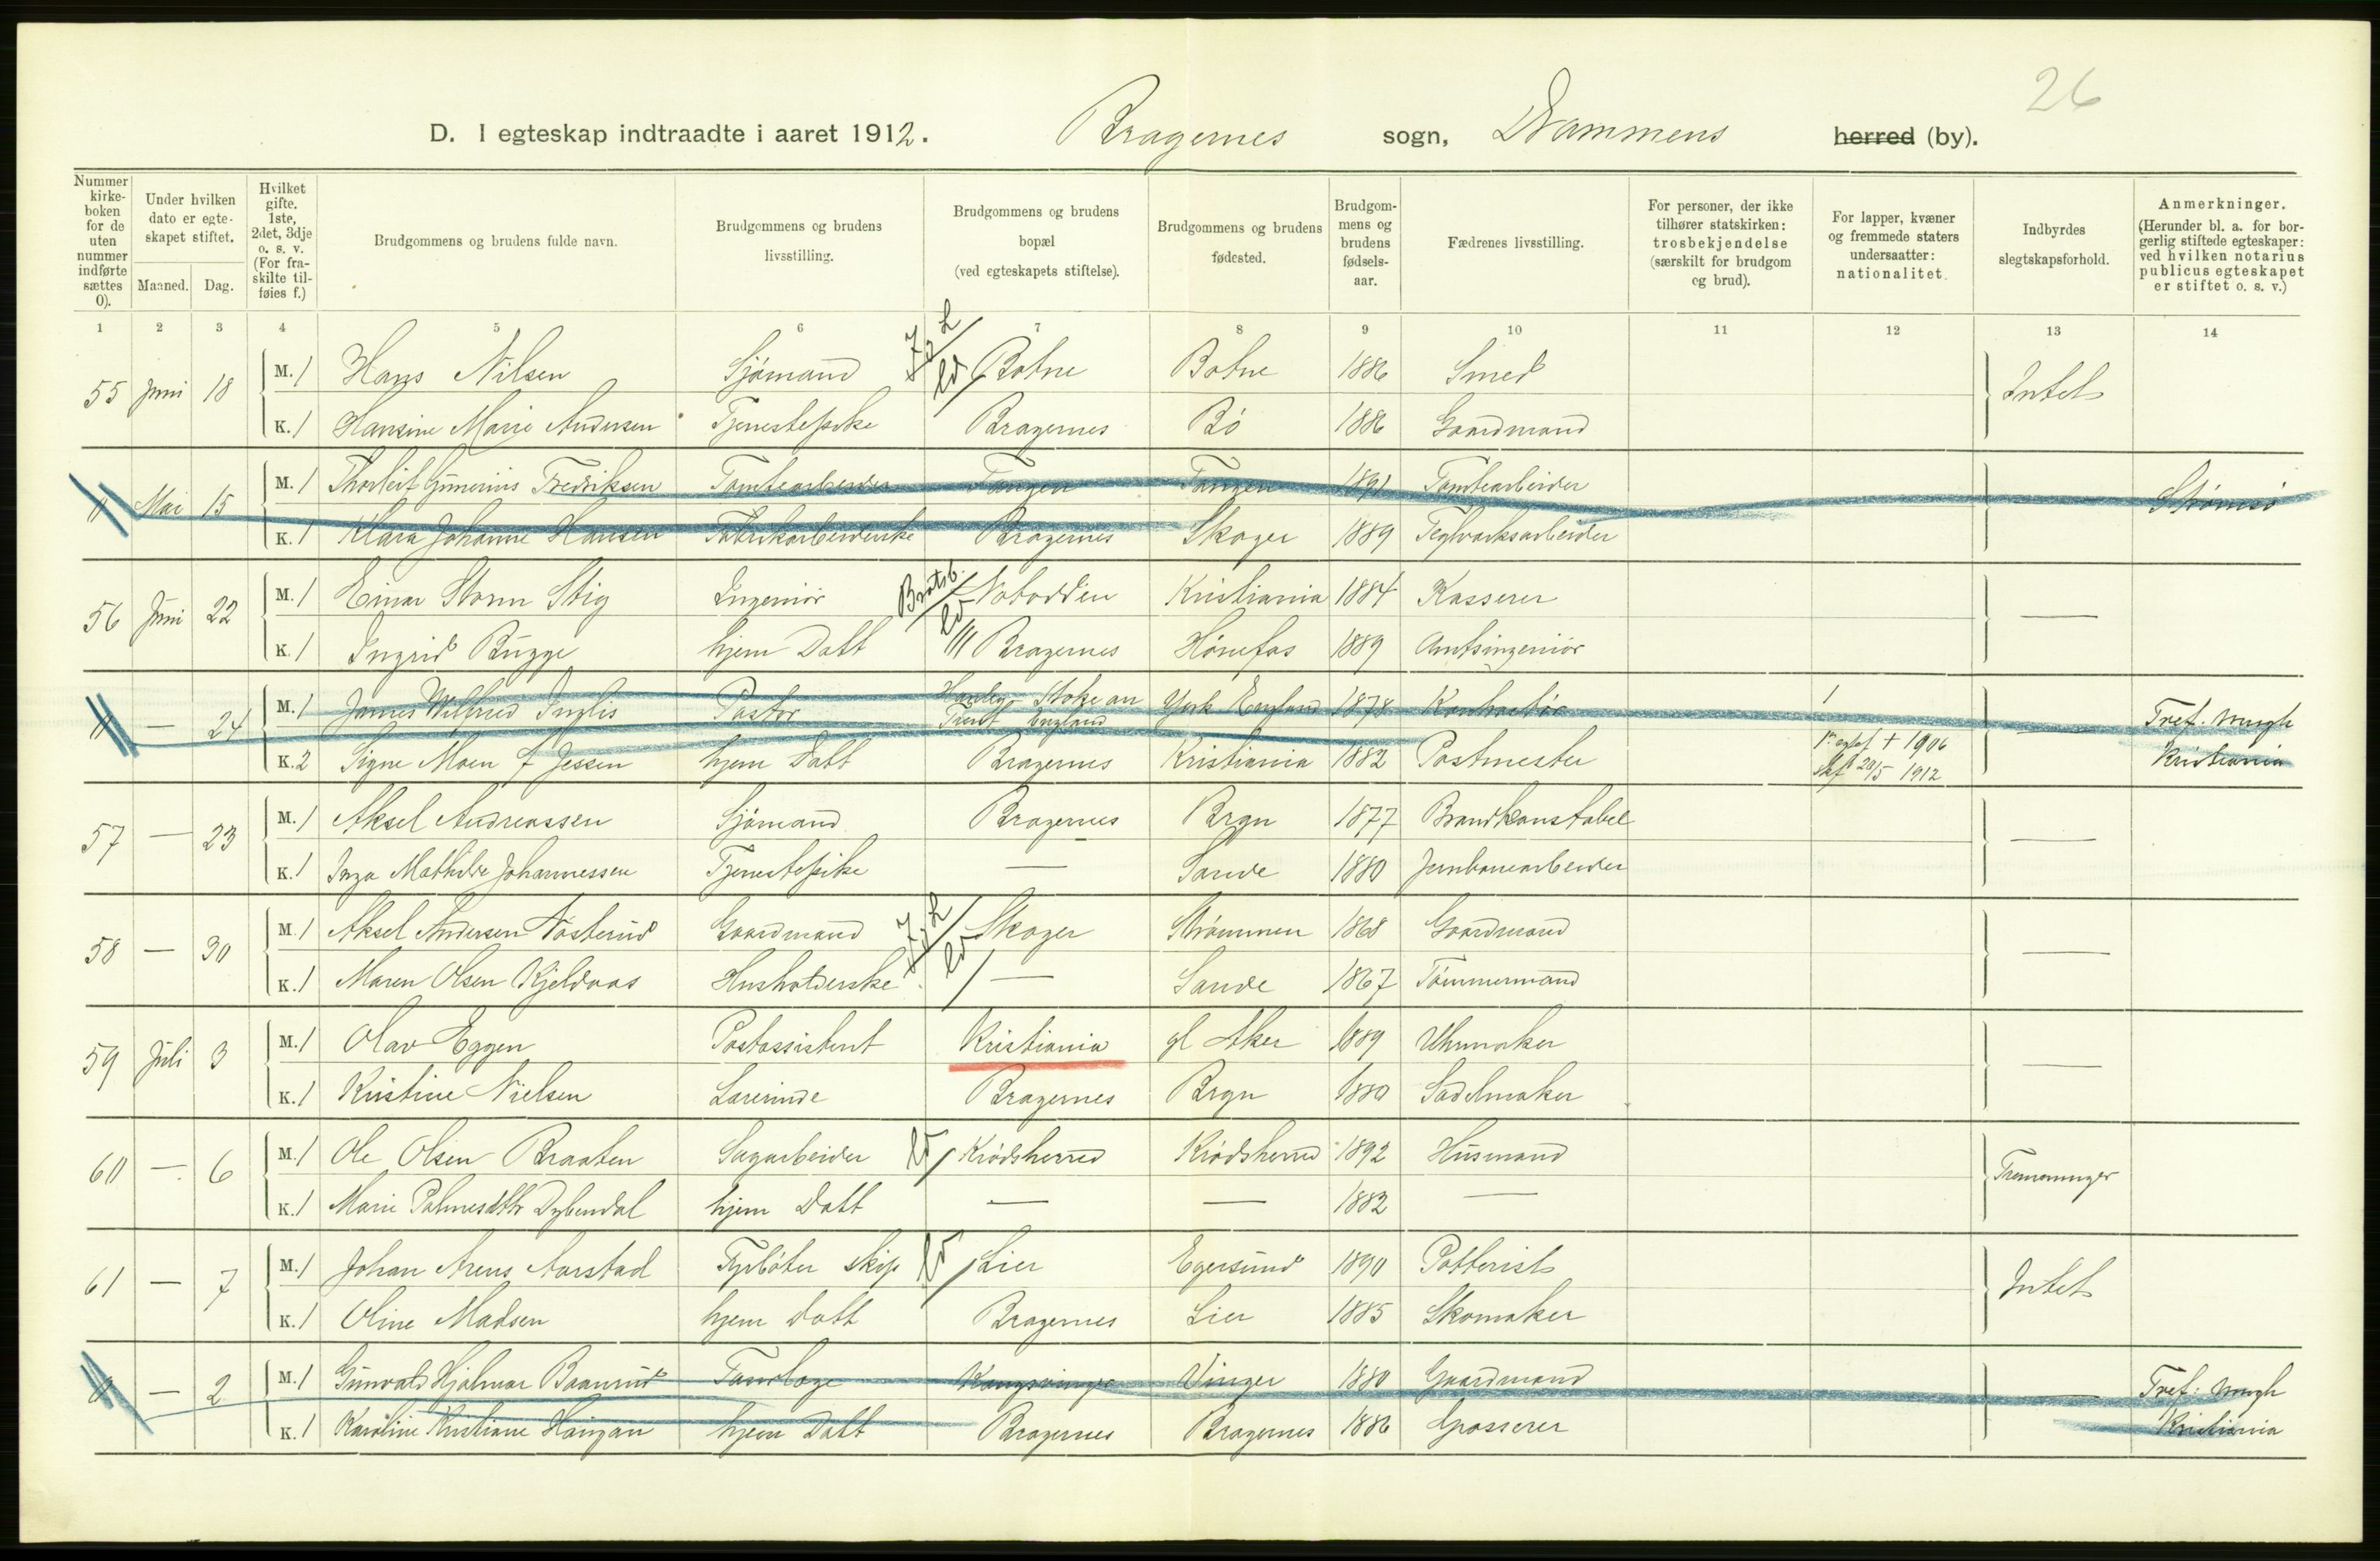 26
D. I egteskap indtraadte i aaret 1912. Bragernes sogn, Drammens herred (by).
Nummer kirke-boken for de uten nummer indførte sættes 0).
Under hvilken dato er egte-skapet stiftet.
Maaned. Dag.
Hvilket gifte. 1ste, 2det, 3dje o. s. v. (For fra-skilte til-føies f.)
Brudgommens og brudens fulde navn.
Brudgommens og brudens livsstilling.
Brudgommens og brudens bopæl (ved egteskapets stiftelse).
Brudgommens og brudens fødested.
Brudgom-mens og brudens fødsels-aar.
Fædrenes livsstilling.
For personer, der ikke tilhører statskirken: trosbekjendelse (særskilt for brudgom og brud).
For lapper, kvæner og fremmede staters undersaatter: nationalitet.
Indbyrdes slegtskapsforhold.
Anmerkninger. (Herunder bl. a. for bor-gerlig stiftede egteskaper: ved hvilken notarius publicus egteskapet er stiftet o. s. v.)
1 2 3 4 5 6 7 8 9 10 11 12 13 14
55 Juni 18 M. 1 Hans Nilsen Sjømand Botne Botne 1886 Smed Intet
K. 1 Hansine Marie Andersen Tjenestepike Bragernes Bö 1886 Gaardmand
0 Mai 15 M. 1 Thorleif Gunerius Fredriksen Tomtearbeider Tangen Tangen 1891 Tomtearbeider Strømsø
K. 1 Klara Johanne Hansen Fabrikarbeiderske Bragernes Skoger 1889 Teglverksarbeider
56 Juni 22 M. 1 Einar Storm Stig Ingeniør Bratsb. Notodden Kristiania 1884 Kasserer —
K. 1 Ingrid Bugge hjem Datt Bragernes Hønefos 1889 Amtsingeniør
0 — 24 M. 1 James Wilfred Inglis Pastor Hanley Stoke on Trent England York England 1878 Kontraktør 1 — Tref. Mngh
K. 2 Signe Moen f Jessen hjem Datt Bragernes Kristiania 1882 Postmester + 1906 20/5 1912 Kristiania
57 — 23 M. 1 Aksel Andreassen Sjømand Bragernes Brgn 1877 Brandkonstabel —
K. 1 Inga Mathilde Johannessen Tjenestepike — Sande 1880 Jernbanearbeider
58 — 30 M. 1 Aksel Andersen Nøsterud Gaardmand Skoger Strømmen 1868 Gaardmand —
K. 1 Maren Olsen Kjeldaas Husholderske — Sande 1867 Tømmermand
59 Juli 3 M. 1 Olav Eggen Postassistent Kristiania gl Aker 1889 Uhrmaker —
K. 1 Kristine Nielsen Lærerinde Bragernes Brgn 1880 Sadelmaker
60 — 6 M. 1 Ole Olsen Braaten Sagarbeider Krødsherred Krødsherred 1892 Husmand Tremenninger
K. 1 Marie Palmesdtr Dybendal hjem Datt — — 1882 —
61 — 7 M. 1 Johan Arens Aarstad Fyrbøter skip Lier Egersund 1890 Potterist Intet
K. 1 Oline Madsen hjem Datt Bragernes Lier 1885 Skomaker
0 — 2 M. 1 Gunvald Hjalmar Baanrud Tandlæge Kongsvinger Vinger 1880 Gaardmand — Tref. Mngh
K. 1 Karoline Kristiane Haugan hjem Datt Bragernes Bragernes 1886 Grosserer Kristiania